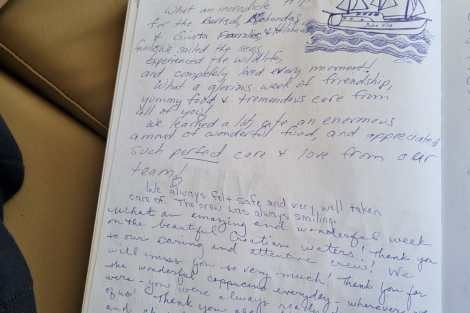 What an incredible trip
for the
&
we sailed the seas,
experienced the wildlife,
and completely loved every moment!
What a glorious week of friendship,
yummy food & tremendous care from
all of you!
We learned a lot, ate an enormous
amount of wonderful food, and appreciated
such perfect care & love from our
team!
We always felt safe and very well taken
care of. The crew was always smiling.
What an amazing and wonderful week
on the beautiful Croatian waters! Thank you
to our caring and attentive crew! We
will miss you so very much! Thank you for
the wonderful cappucino everyday - wherever we
were - you were always
of us! Thank you